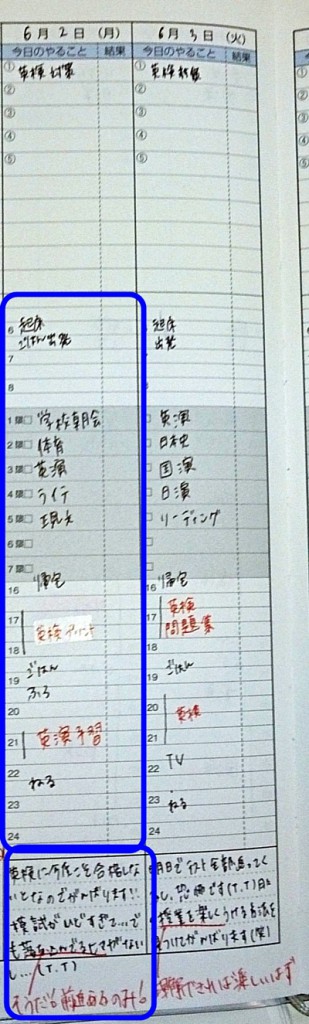 6月2日（月）
今日のやること 結果
① 英検対策
②
③
④
⑤
6 起床
ごはん 出発
7
8
1限 学校朝会
2限 体育
3限 英演
4限 ライテ
5限 現文
6限
7限
帰宅
16
17 英検プリント
18
ごはん
19
ふろ
20
21 英演予習
22
ねる
23
24
英検に今年こそ合格しな
いとなのでがんばります!!
模試がひどすぎて…で
も落ちこんでるヒマがない
し…(T.T)
そうだ!!前進あるのみ!!
6月3日（火）
今日のやること 結果
① 英検対策
②
③
④
⑤
起床
出発
英演
日本史
国演
日演
リーディング
帰宅
16
17 英検
問題集
18
ごはん
19
20 英検
21
22 TV
23
ねる
24
明日でテスト全部返ってく
るし、恐怖です(T.T)
授業を楽しくうける方法を
見つけてがんばります(笑)
理解できれば楽しいはず